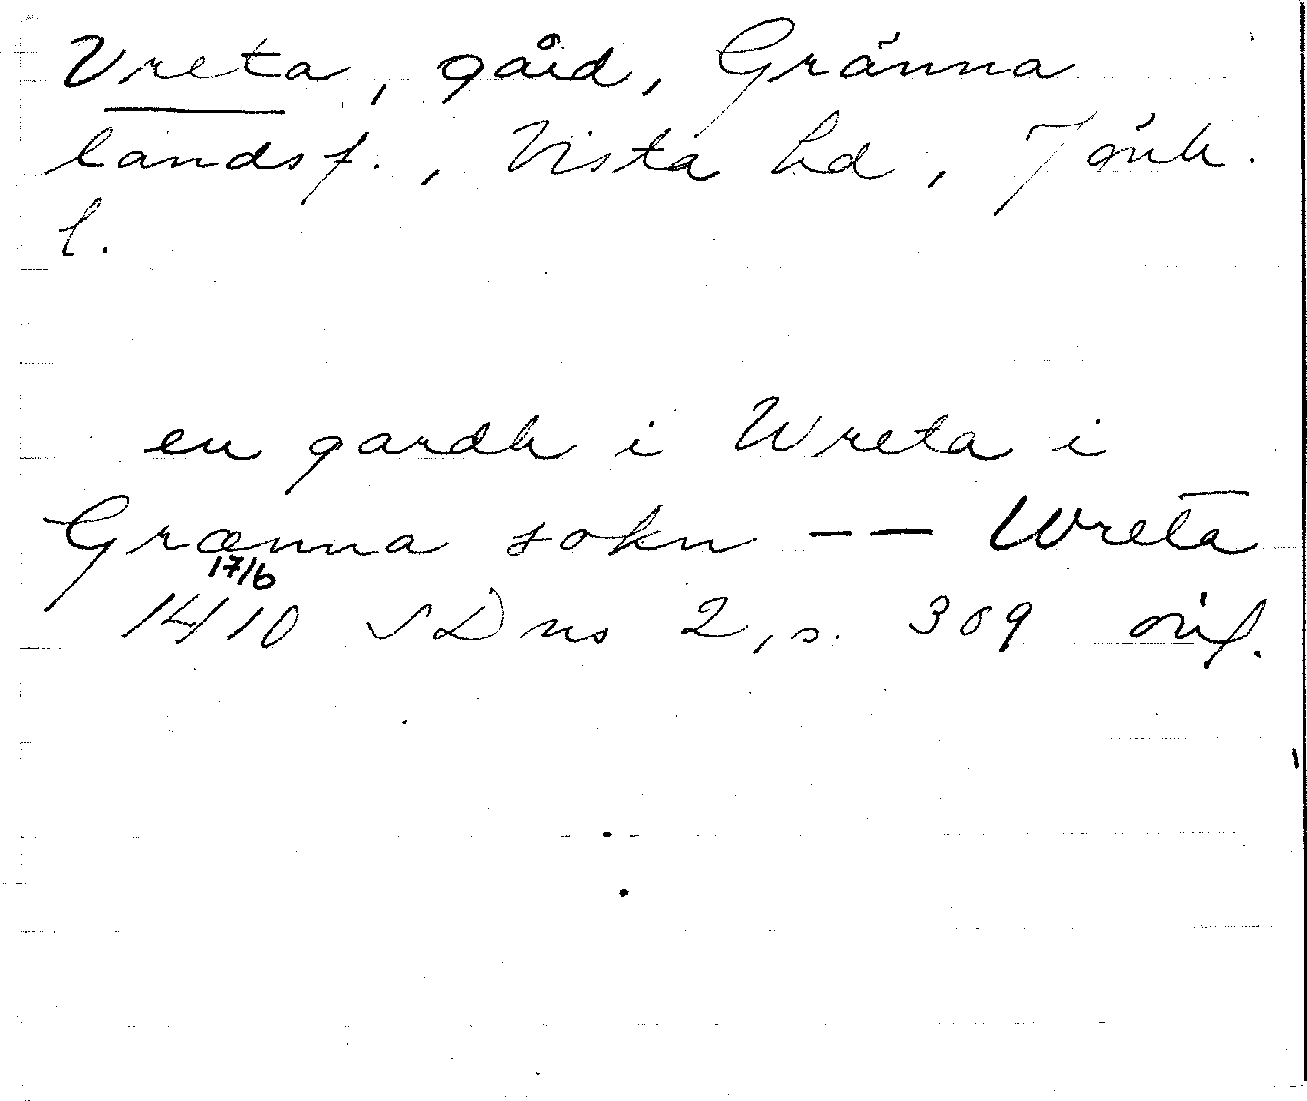 Vreta, gård, Gränna
landsf., Vista hd, Jönk.
l.
en gardh i Wreta i
Grænna sokn -- Wreta
17/6
1410 SDns 2, s. 309